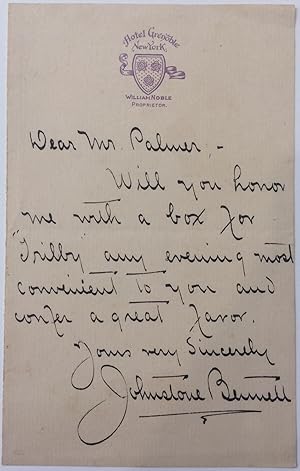 Hotel Grenoble
New York.
William Noble
Proprietor.
Dear Mr. Palmer,-
Will you honor
me with a box for
"Trilby" any evening most
convenient to you and
confer a great favor.
Yours very Sincerely
Johnstone Bennett